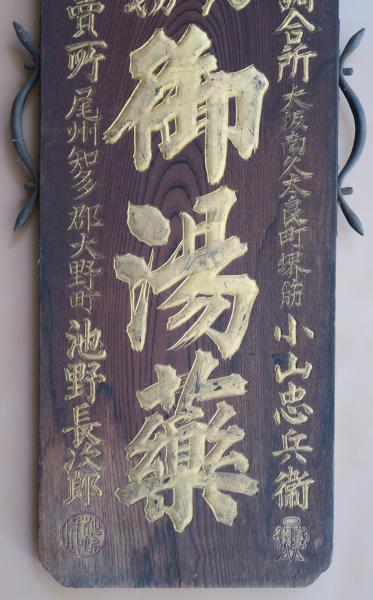 調合所 大坂南久太良町堺筋 小山忠兵衞
御湯藥
賣所 尾州知多郡大野町 池野長次郎